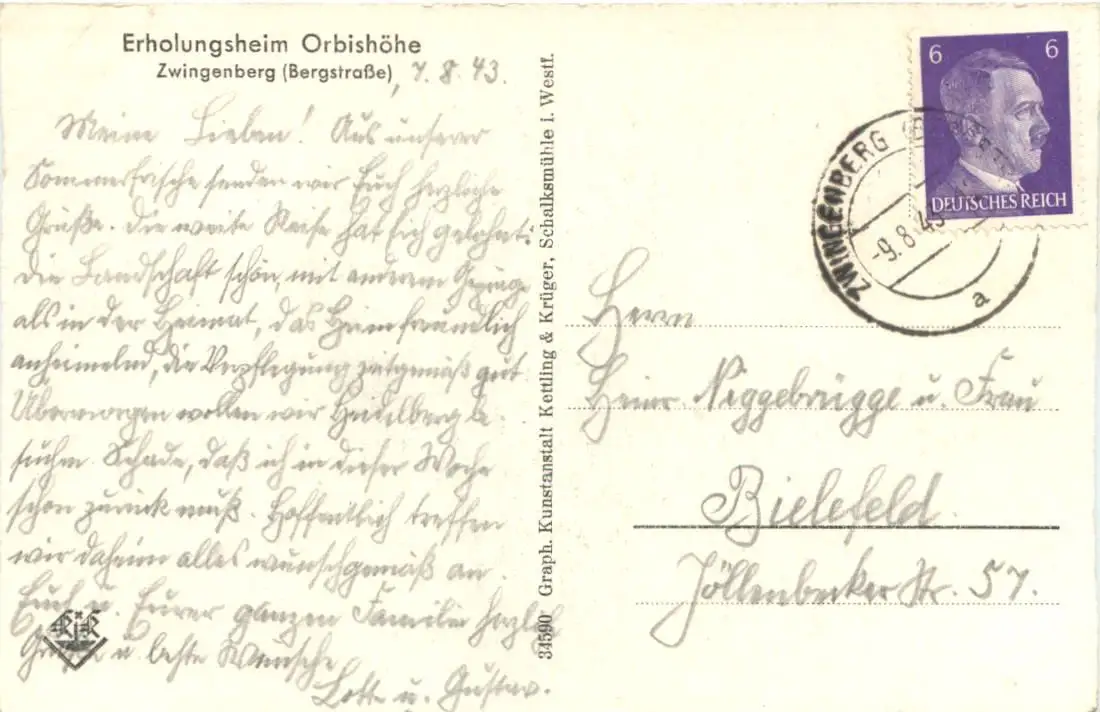 Erholungsheim Orbishöhe
Zwingenberg (Bergstraße), 7.8.43.
Meine Lieben! Aus unserer
Sommerfrische senden wir Euch herzliche
Grüße. Die weite Reise hat sich gelohnt:
die Landschaft schön, mit anderem Gepräge
als in der Heimat, das Heim freundlich
anheimelnd, die Verpflegung zeitgemäß gut.
Übermorgen wollen wir Heidelberg be-
suchen. Schade, daß ich in dieser Woche
schon zurück muß. Hoffentlich treffen
wir daheim alles wunschgemäß an.
Euch u. Eurer ganzen Familie herzlich
Grüße u. beste Wünsche
Lotte u. Gustav.
34590 Graph. Kunstanstalt Kettling & Krüger, Schalksmühle i. Westf.
6 6
DEUTSCHES REICH
ZWINGENBERG
-9.8.43
a
Herrn
Heinr. Niggebrügge u. Frau
Bielefeld.
Jöllenbecker Str. 57.